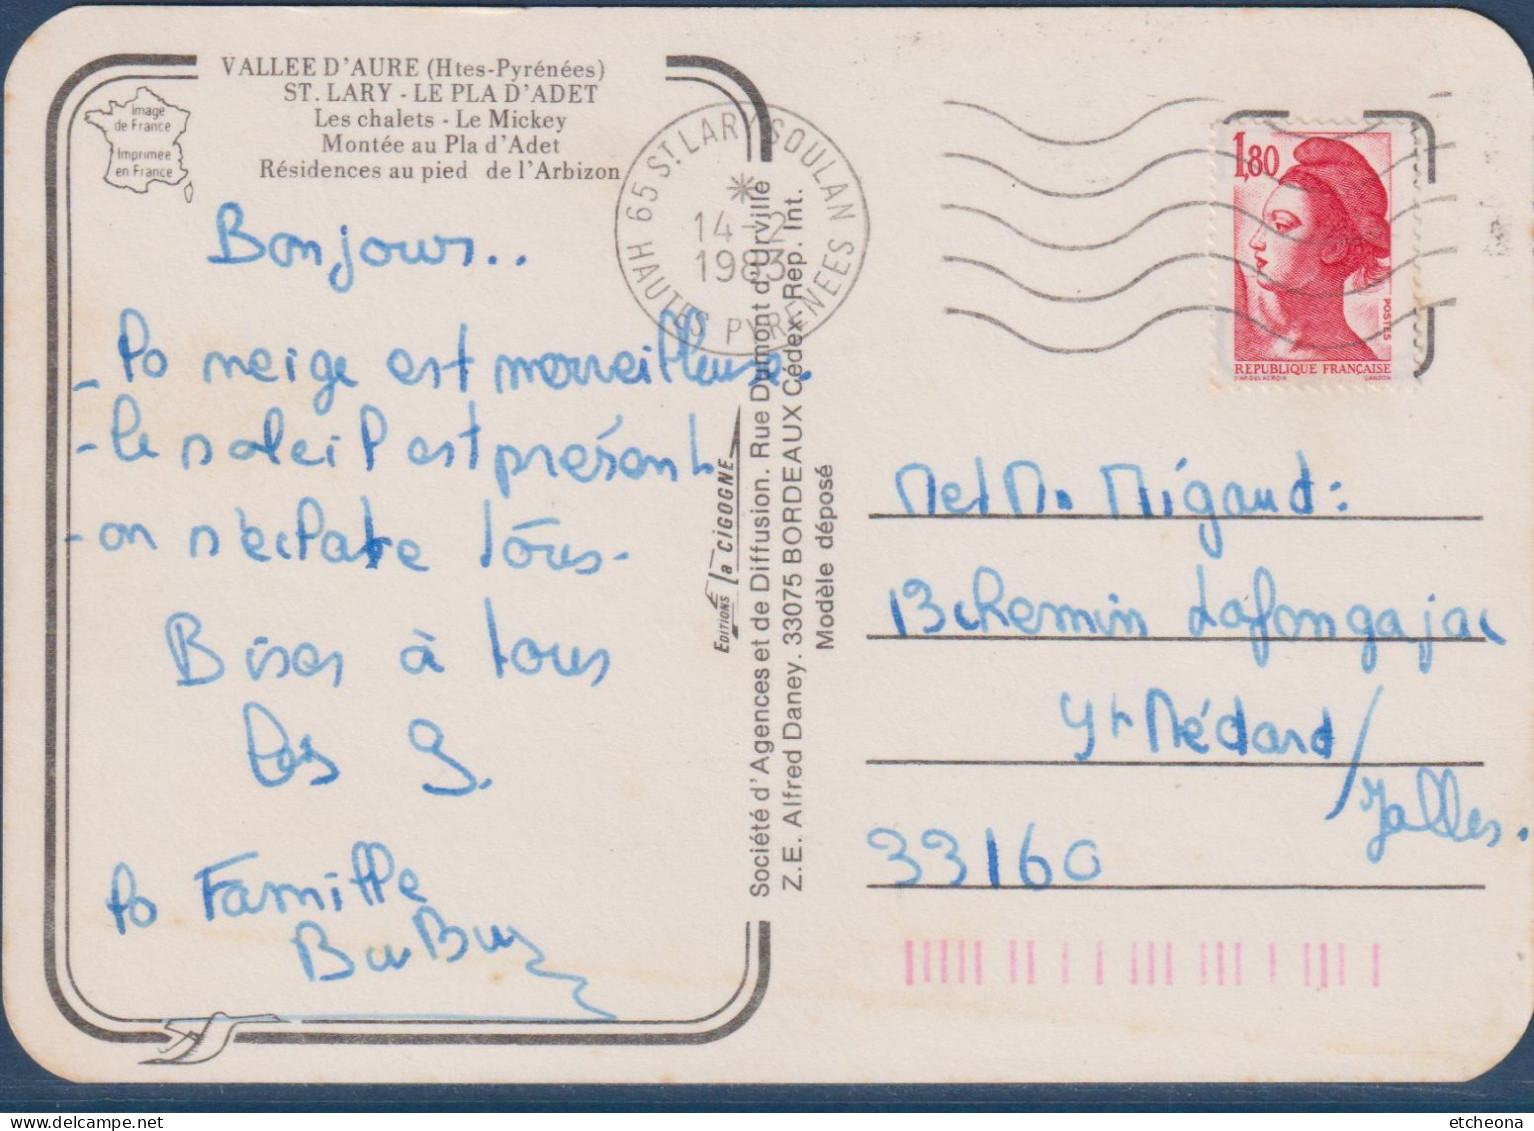 VALLEE D'AURE (Htes-Pyrénées)
ST. LARY - LE PLA D'ADET
Les chalets - Le Mickey
Montée au Pla d'Adet
Résidences au pied de l'Arbizon
Image
de France
Imprimée
en France
Bonjour..
- La neige est merveilleuse.
- le soleil est présent
- on s'éclate tous -
Bises à tous
Les G.
La Famille
65 ST. LARY SOULAN
14 - 2
1983
HAUTES PYRENEES
Editions la CIGOGNE
Société d'Agences et de Diffusion. Rue Dumont d'urville
Z.E. Alfred Daney. 33075 BORDEAUX Cédex. Rep. Int.
Modèle déposé
1,80
POSTES
REPUBLIQUE FRANÇAISE
D'AP. DELACROIX GANDON
M et M. Migaud :
13 chemin Lafongajac
St Médard /
Jalles.
33160
etcheona